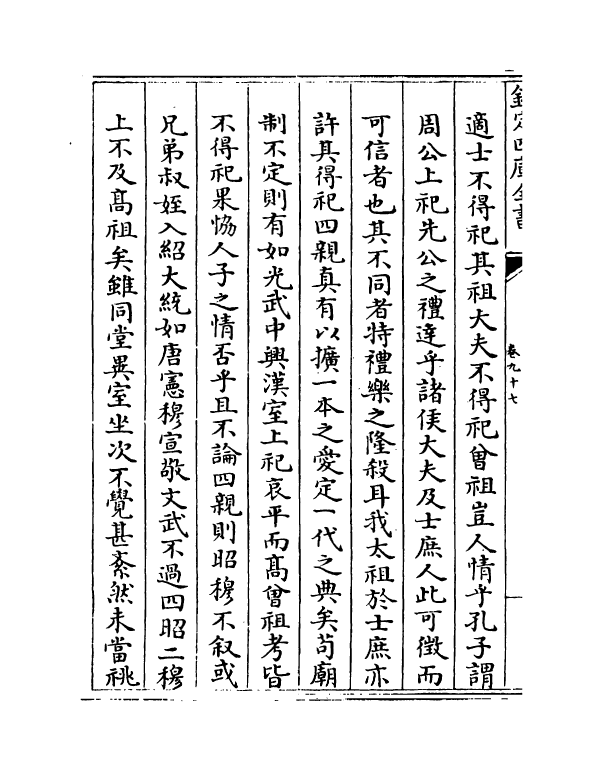 欽定四庫全書
卷九十七
適士不得祀其祖大夫不得祀曾祖豈人情乎孔子謂
周公上祀先公之禮達乎諸侯大夫及士庶人此可徴而
可信者也其不同者特禮樂之隆殺耳我太祖於士庶亦
許其得祀四親真有以擴一本之愛定一代之典矣茍廟
制不定則有如光武中興漢室上祀哀平而髙曾祖考皆
不得祀果恊人子之情否乎且不論四親則昭穆不叙或
兄弟叔姪入紹大統如唐憲穆宣敬文武不過四昭二穆
上不及髙祖矣雖同堂異室坐次不覺甚紊然未當祧